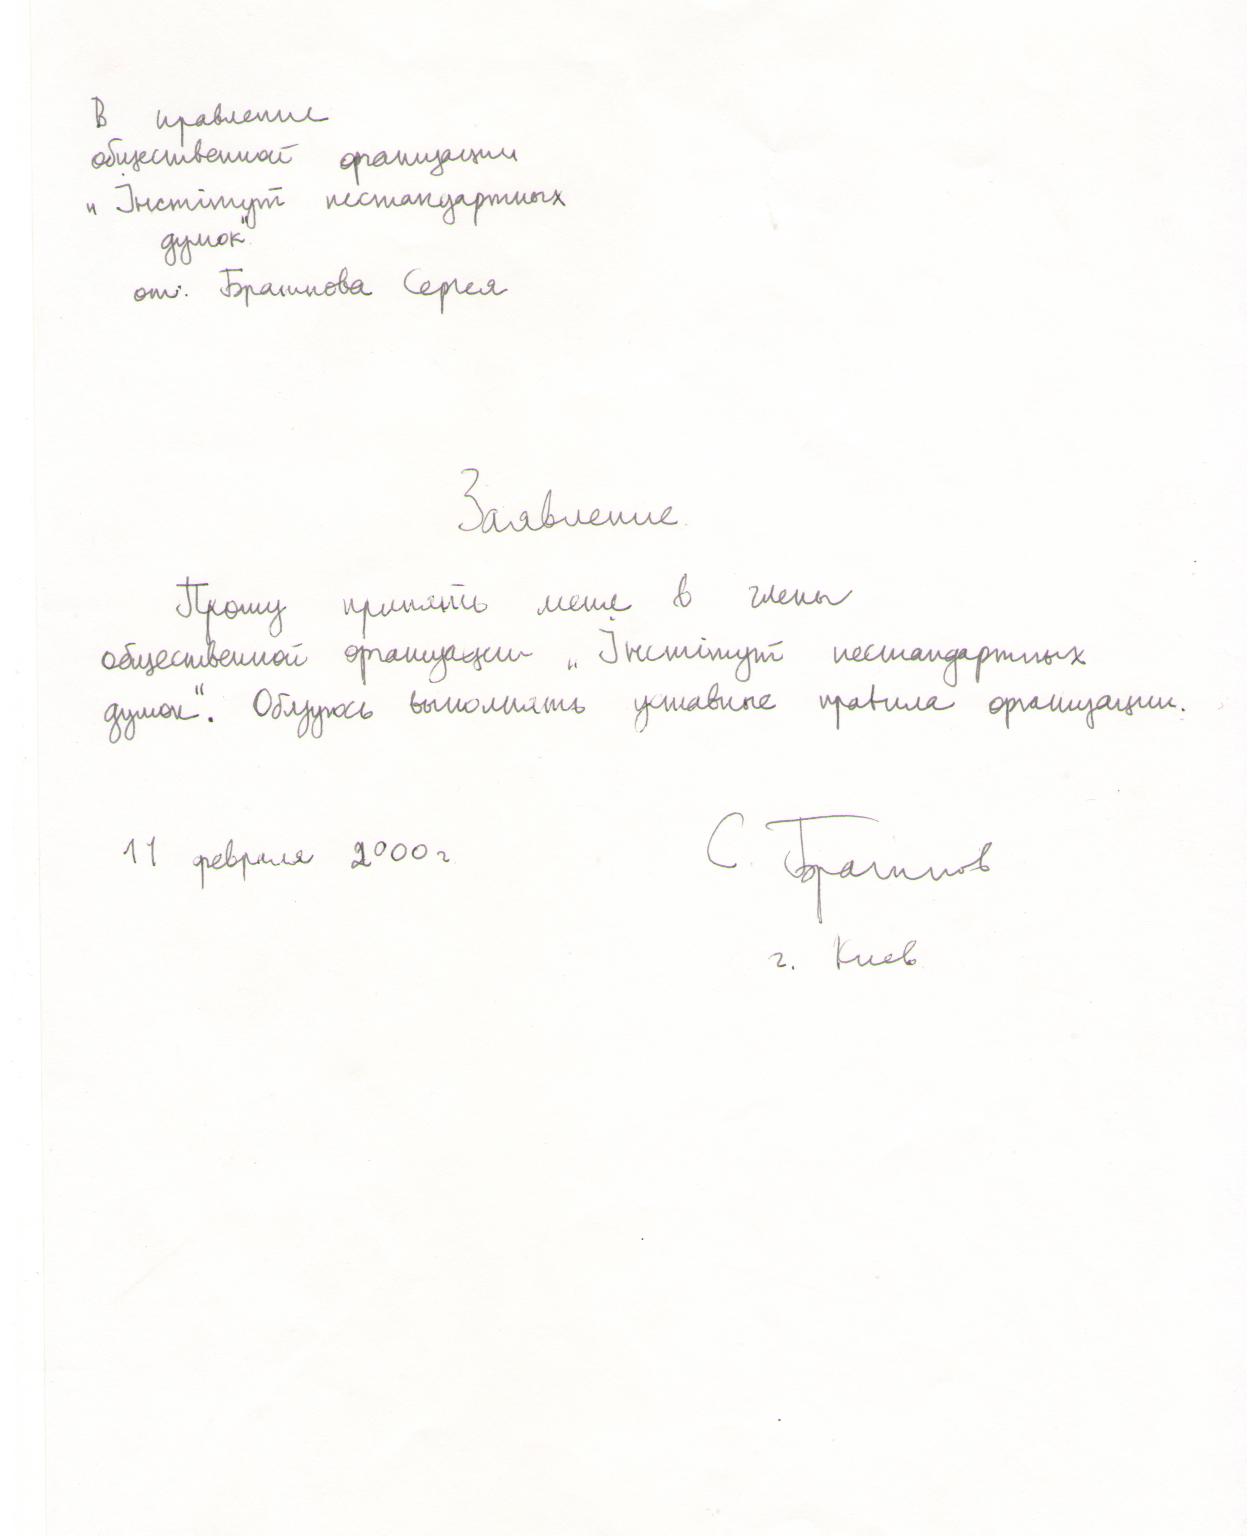 В правление
общественной организации
„Інстітут нестандартных
думок"
от: Брагинова Сергея
Заявление
Прошу принять меня в члены
общественной организации „Інстітут нестандартных
думок". Обязуюсь выполнять уставные правила организации.
11 февраля 2000г
С. Брагинов
г. Киев